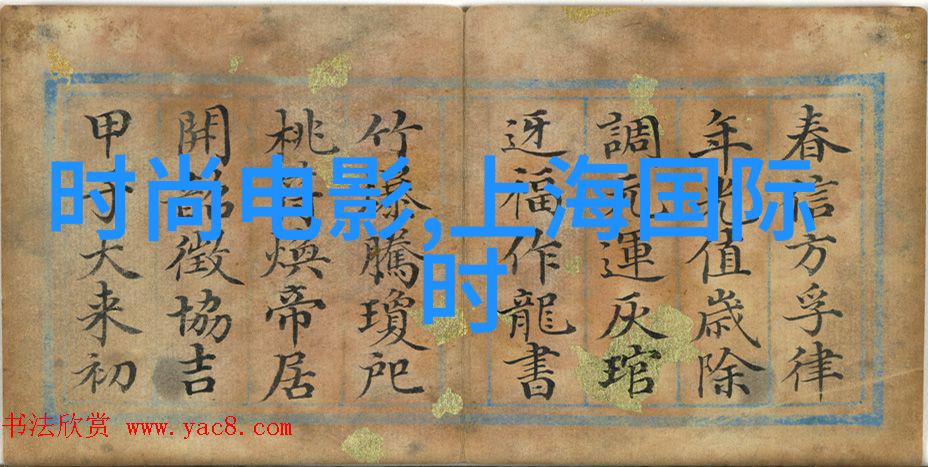 时尚电影,上海国际
时
春信方孚律
年光值歲除
調元運灰琯
迓福作龍書
竹騰瓊祀
桃符煥帝居
開韶徵協吉
甲子大来初
书法欣赏 www.yac8.com